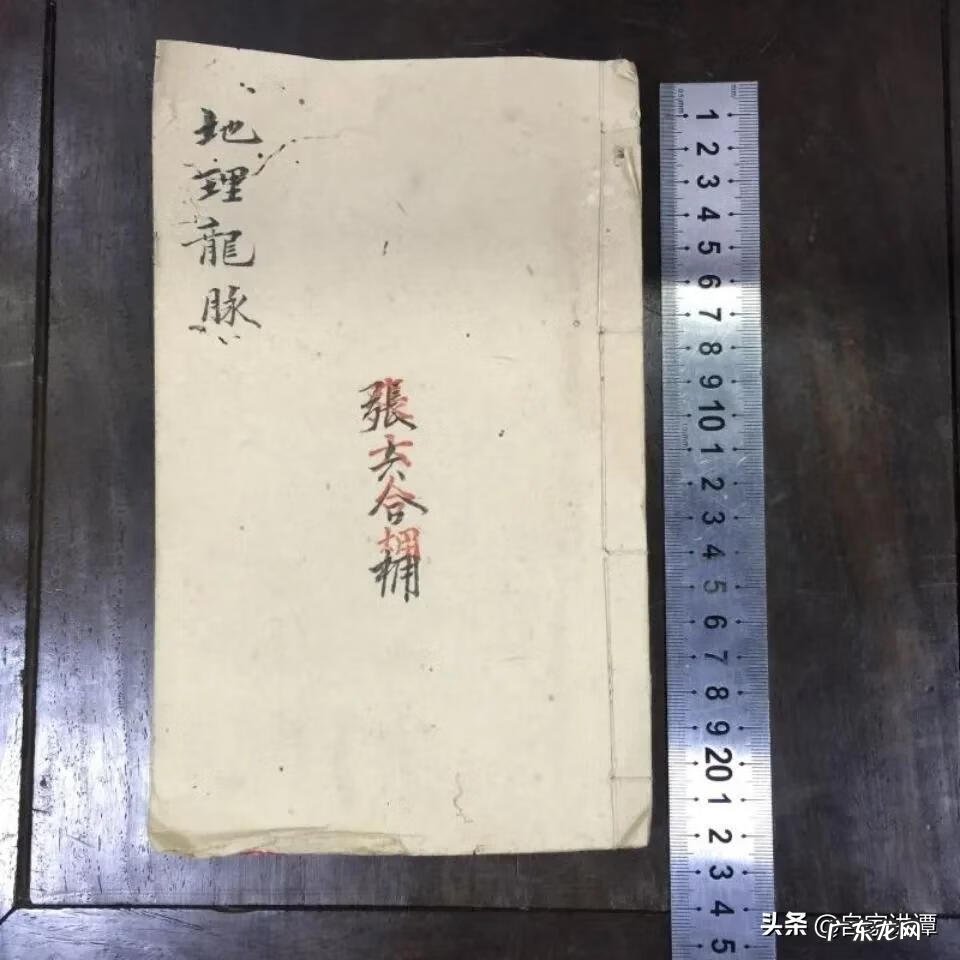 地理龍脉
張六合
mm
0.5mm
1
2
3
4
5
6
7
8
9
10
1
2
3
4
5
6
7
8
9
20
1
2
3
4
5
头条 @客家洪谭
广东龙网